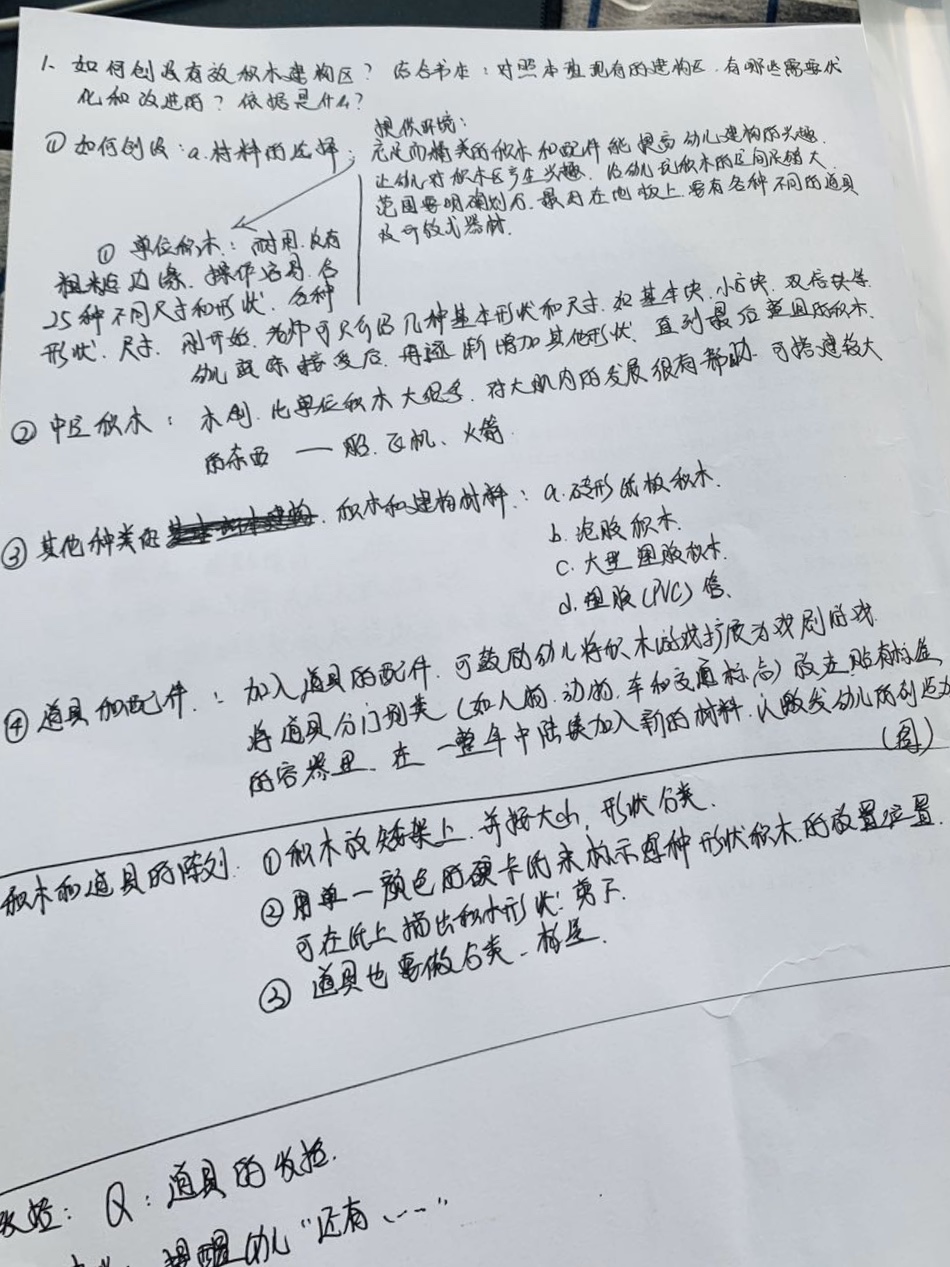 1. 如何创设有效积木建构区？结合书本：对照本班现有的建构区，有哪些需要优
化和改进的？依据是什么？
① 如何创设：a. 材料的选择：
提供环境：
充足而精美的积木和配件能提高幼儿建构的兴趣，
让幼儿对积木区产生兴趣。给幼儿玩积木的空间足够大，
范围要明确划分，最好在地板上，要有各种不同的道具
及开放式器材．
① 单位积木：耐用，没有
粗糙边缘，操作容易，含
25种不同尺寸和形状，各种
形状、尺寸．刚开始，老师可只有几种基本形状和尺寸，如基本块、小方块、双倍块等．
幼儿接受后，再逐渐增加其他形状，直到最后
② 中空积木：木制，比单位积木大很多，对大肌肉的发展很有帮助，可搭建较大
的东西 —— 船、飞机、火箭．
③ 其他种类的 积木和建构材料：a. 砖形纸板积木．
b. 泡胶积木．
c. 大型塑胶积木．
d. 塑胶(PVC)管．
④ 道具和配件：加入道具的配件，可鼓励幼儿将积木游戏扩展为戏剧游戏．
将道具分门别类（如人物、动物、车和交通标志）放在贴有标签
的容器里，在一整年中陆续加入新的材料，以激发幼儿的创造力
（图）
积木和道具的陈列：①积木放矮架上，并按大小、形状分类．
② 用单一颜色的硬卡纸来标示每种形状积木的放置位置．
可在纸上描出积木形状，剪下．
③ 道具也要做分类、标签．
Q：道具的发挥．
提醒幼儿“还有……”